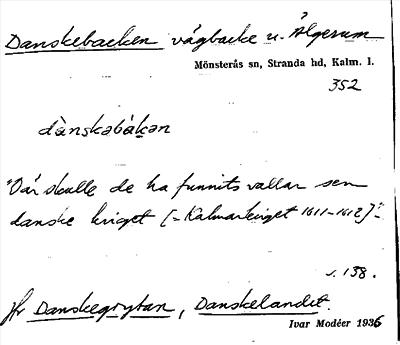 Danskebacken vägbacke u. Ålgerum
Mönsterås sn, Stranda hd, Kalm. l.
352
dànskəbàkən
"Där skulle de ha funnits vallar sen
danske kriget [= Kalmarkriget 1611–1612]"
s. 138.
Jfr Danskegrytan, Danskelandet.
Ivar Modéer 1936